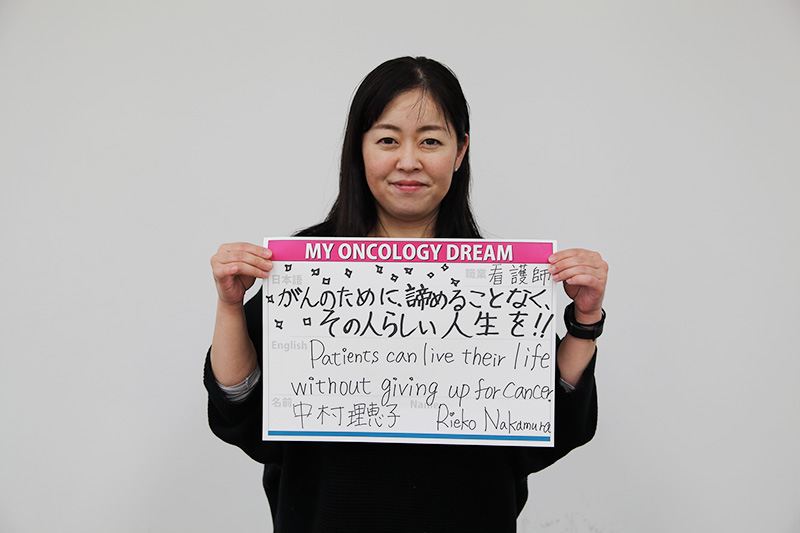 MY ONCOLOGY DREAM
日本語 職業 看護師
がんのために、諦めることなく、
その人らしい人生を!!
English Patients can live their life
without giving up for cancer.
名前 中村理恵子 Name Rieko Nakamura